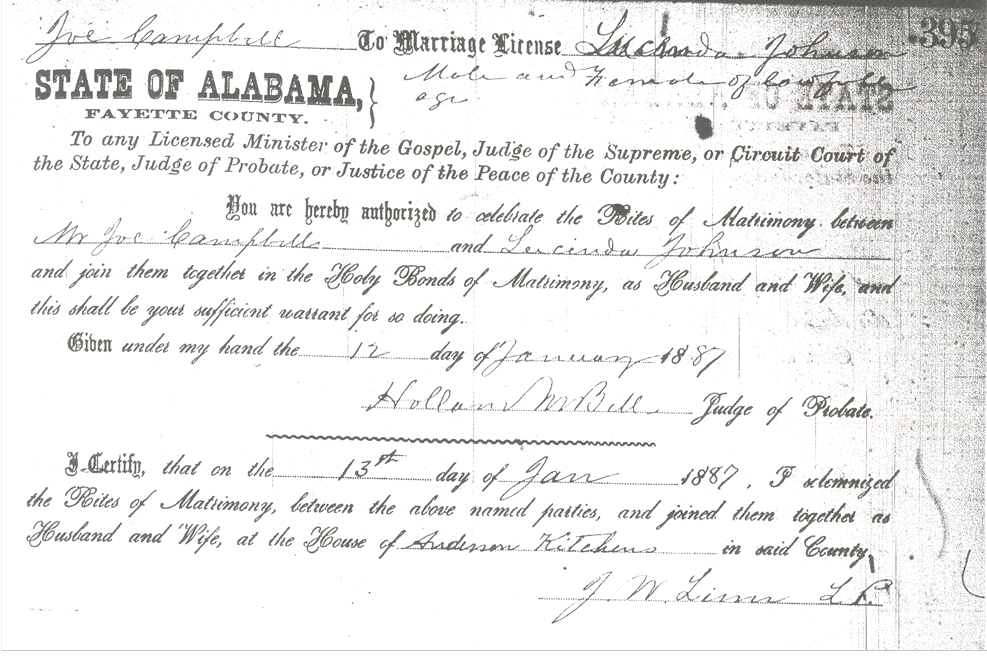 Joe Campbell To Marriage License Lucinda Johnson 395
Male and Female of lawful
age
STATE OF ALABAMA,
FAYETTE COUNTY.
To any Licensed Minister of the Gospel, Judge of the Supreme, or Circuit Court of
the State, Judge of Probate, or Justice of the Peace of the County:
You are hereby authorized to celebrate the Rites of Matrimony between
Mr Joe Campbell and Lucinda Johnson
and join them together in the Holy Bonds of Matrimony, as Husband and Wife, and
this shall be your sufficient warrant for so doing.
Given under my hand the 12 day of January 1887
Hollan M Bell Judge of Probate.
I Certify, that on the 13th day of Jan 1887, I solemnized
the Rites of Matrimony, between the above named parties, and joined them together as
Husband and Wife, at the House of Anderson Kitchens in said County
J. W.